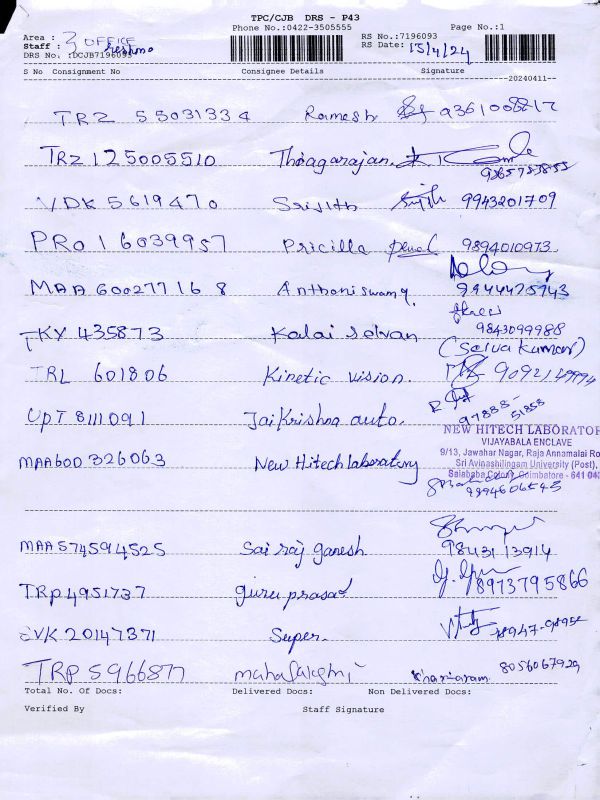 TPC/CJB DRS - P43
Phone No.:0422-3505555
Page No.:1
Area : 3 OFFICE
RS No.:7196093
Staff : reshma
RS Date: 15/4/24
DRS No. :DCJB7196093
S No Consignment No Consignee Details Signature
20240411
TRZ 55031334 Ramesh
TRZ 125005510 Thiagarajan
VDK 5619470 Srijith 9943201709
PRO 16039957 Pricilla 9894010973
MAA 600277168 Anthoniswamy 9944425743
TKY 435873 Kalai selvan 9843099988
(Selva kumar)
TRL 601806 Kinetic vision.
UPT 8111091 Jai Krishna auto.
NEW HITECH LABORATOR
VIJAYABALA ENCLAVE
9/13, Jawahar Nagar, Raja Annamalai Ro
Sri Avinashilingam University (Post),
Saibaba Colony, Coimbatore - 641 04
MAA600 326063 New Hitech laboratory
9894606545
MAA574594525 Sai raj ganesh 98431 13914
TRP4951737 guru prasad 8973795866
EVK 20147371 Super.
TRP 5966877 mahalakshmi 8056067929
Total No. Of Docs: Delivered Docs: Non Delivered Docs:
Verified By Staff Signature